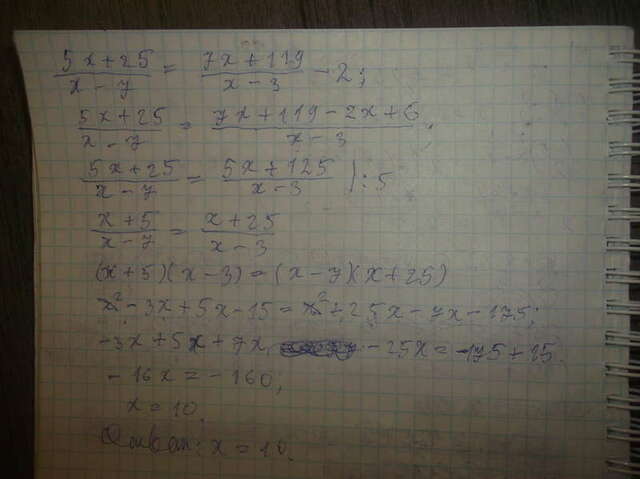 (5x+25)/(x-7) = (7x+119)/(x-3) - 2;
(5x+25)/(x-7) = (7x+119-2x+6)/(x-3);
(5x+25)/(x-7) = (5x+125)/(x-3) |:5
(x+5)/(x-7) = (x+25)/(x-3)
(x+5)(x-3)=(x-7)(x+25)
x²-3x+5x-15=x²+25x-7x-175;
-3x+5x+7x-25x=-175+15.
-16x=-160;
x=10.
Ответ: x=10.